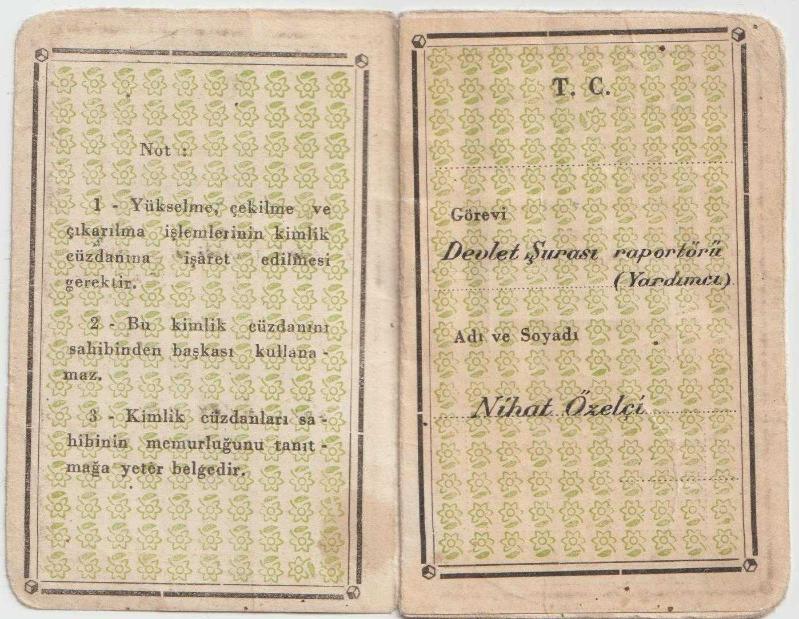 Not :
1 - Yükselme, çekilme ve
çıkarılma işlemlerinin kimlik
cüzdanına işaret edilmesi
gerektir.
2 - Bu kimlik cüzdanını
sahibinden başkası kullana -
maz.
3 - Kimlik cüzdanları sa -
hibinin memurluğunu tanıt -
mağa yeter belgedir.
T. C.
Görevi
Devlet Şurası raportörü
(Yardımcı)
Adı ve Soyadı
Nihat Özelçi